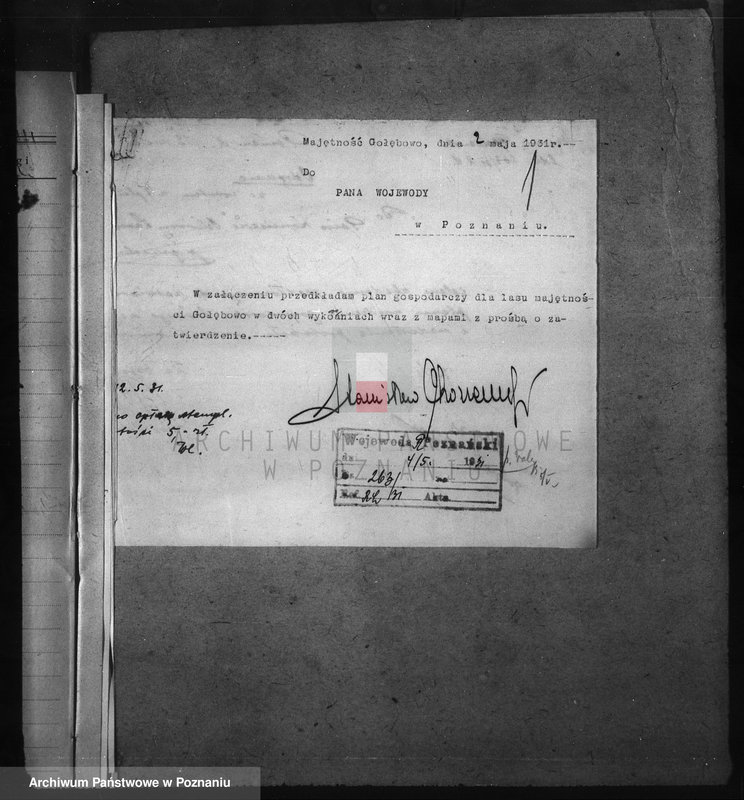 Majętność Gołębowo, dnia 2 maja 1931r.--
Do
PANA WOJEWODY
w Poznaniu.
W załączeniu przedkładam plan gospodarczy dla lasu majętnoś-
ci Gołębowo w dwóch wykonaniach wraz z mapami z prośbą o za-
twierdzenie.-----
Stanisław
12.5.31.
opłatę stempl.
5,- zł.
Wojewoda Poznański
4/5. 1931
263/
Akta
ARCHIWUM PAŃSTWOWE
W POZNANIU
Archiwum Państwowe w Poznaniu